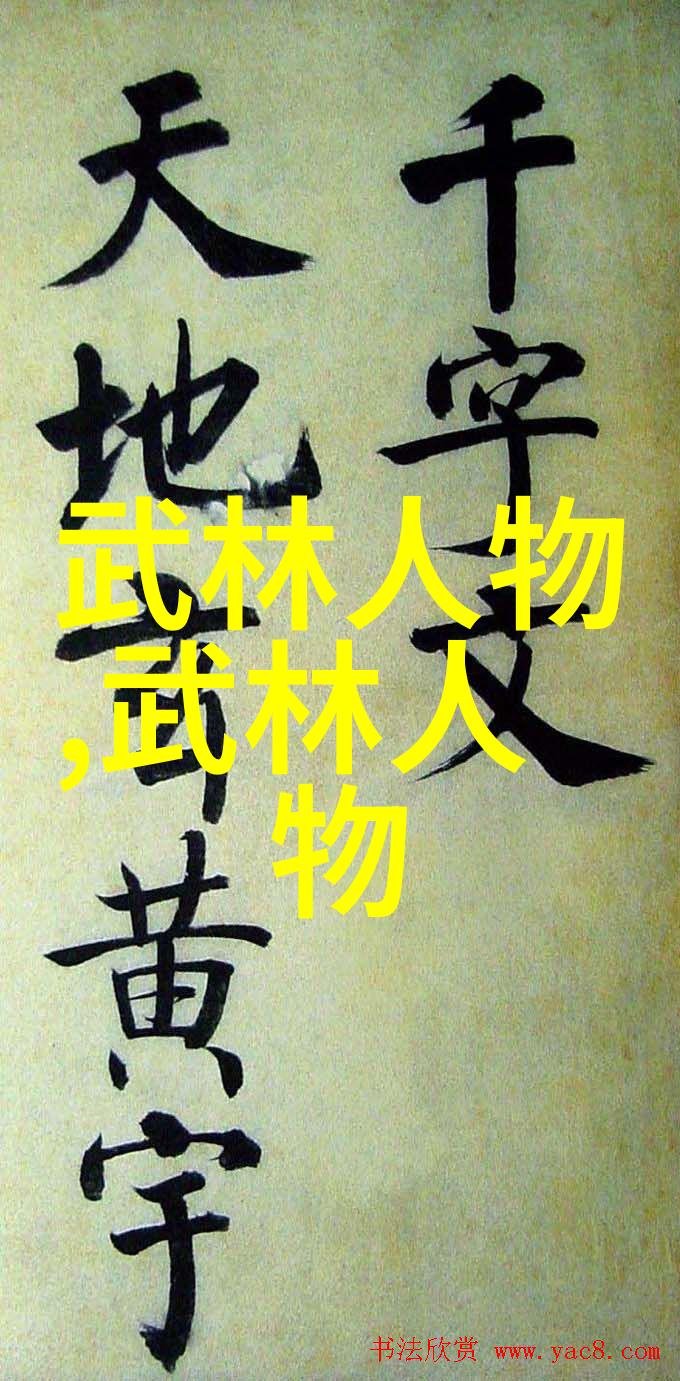 千字文
天地黄宇
武林人物
,武林人
物
书法欣赏 www.yac8.com